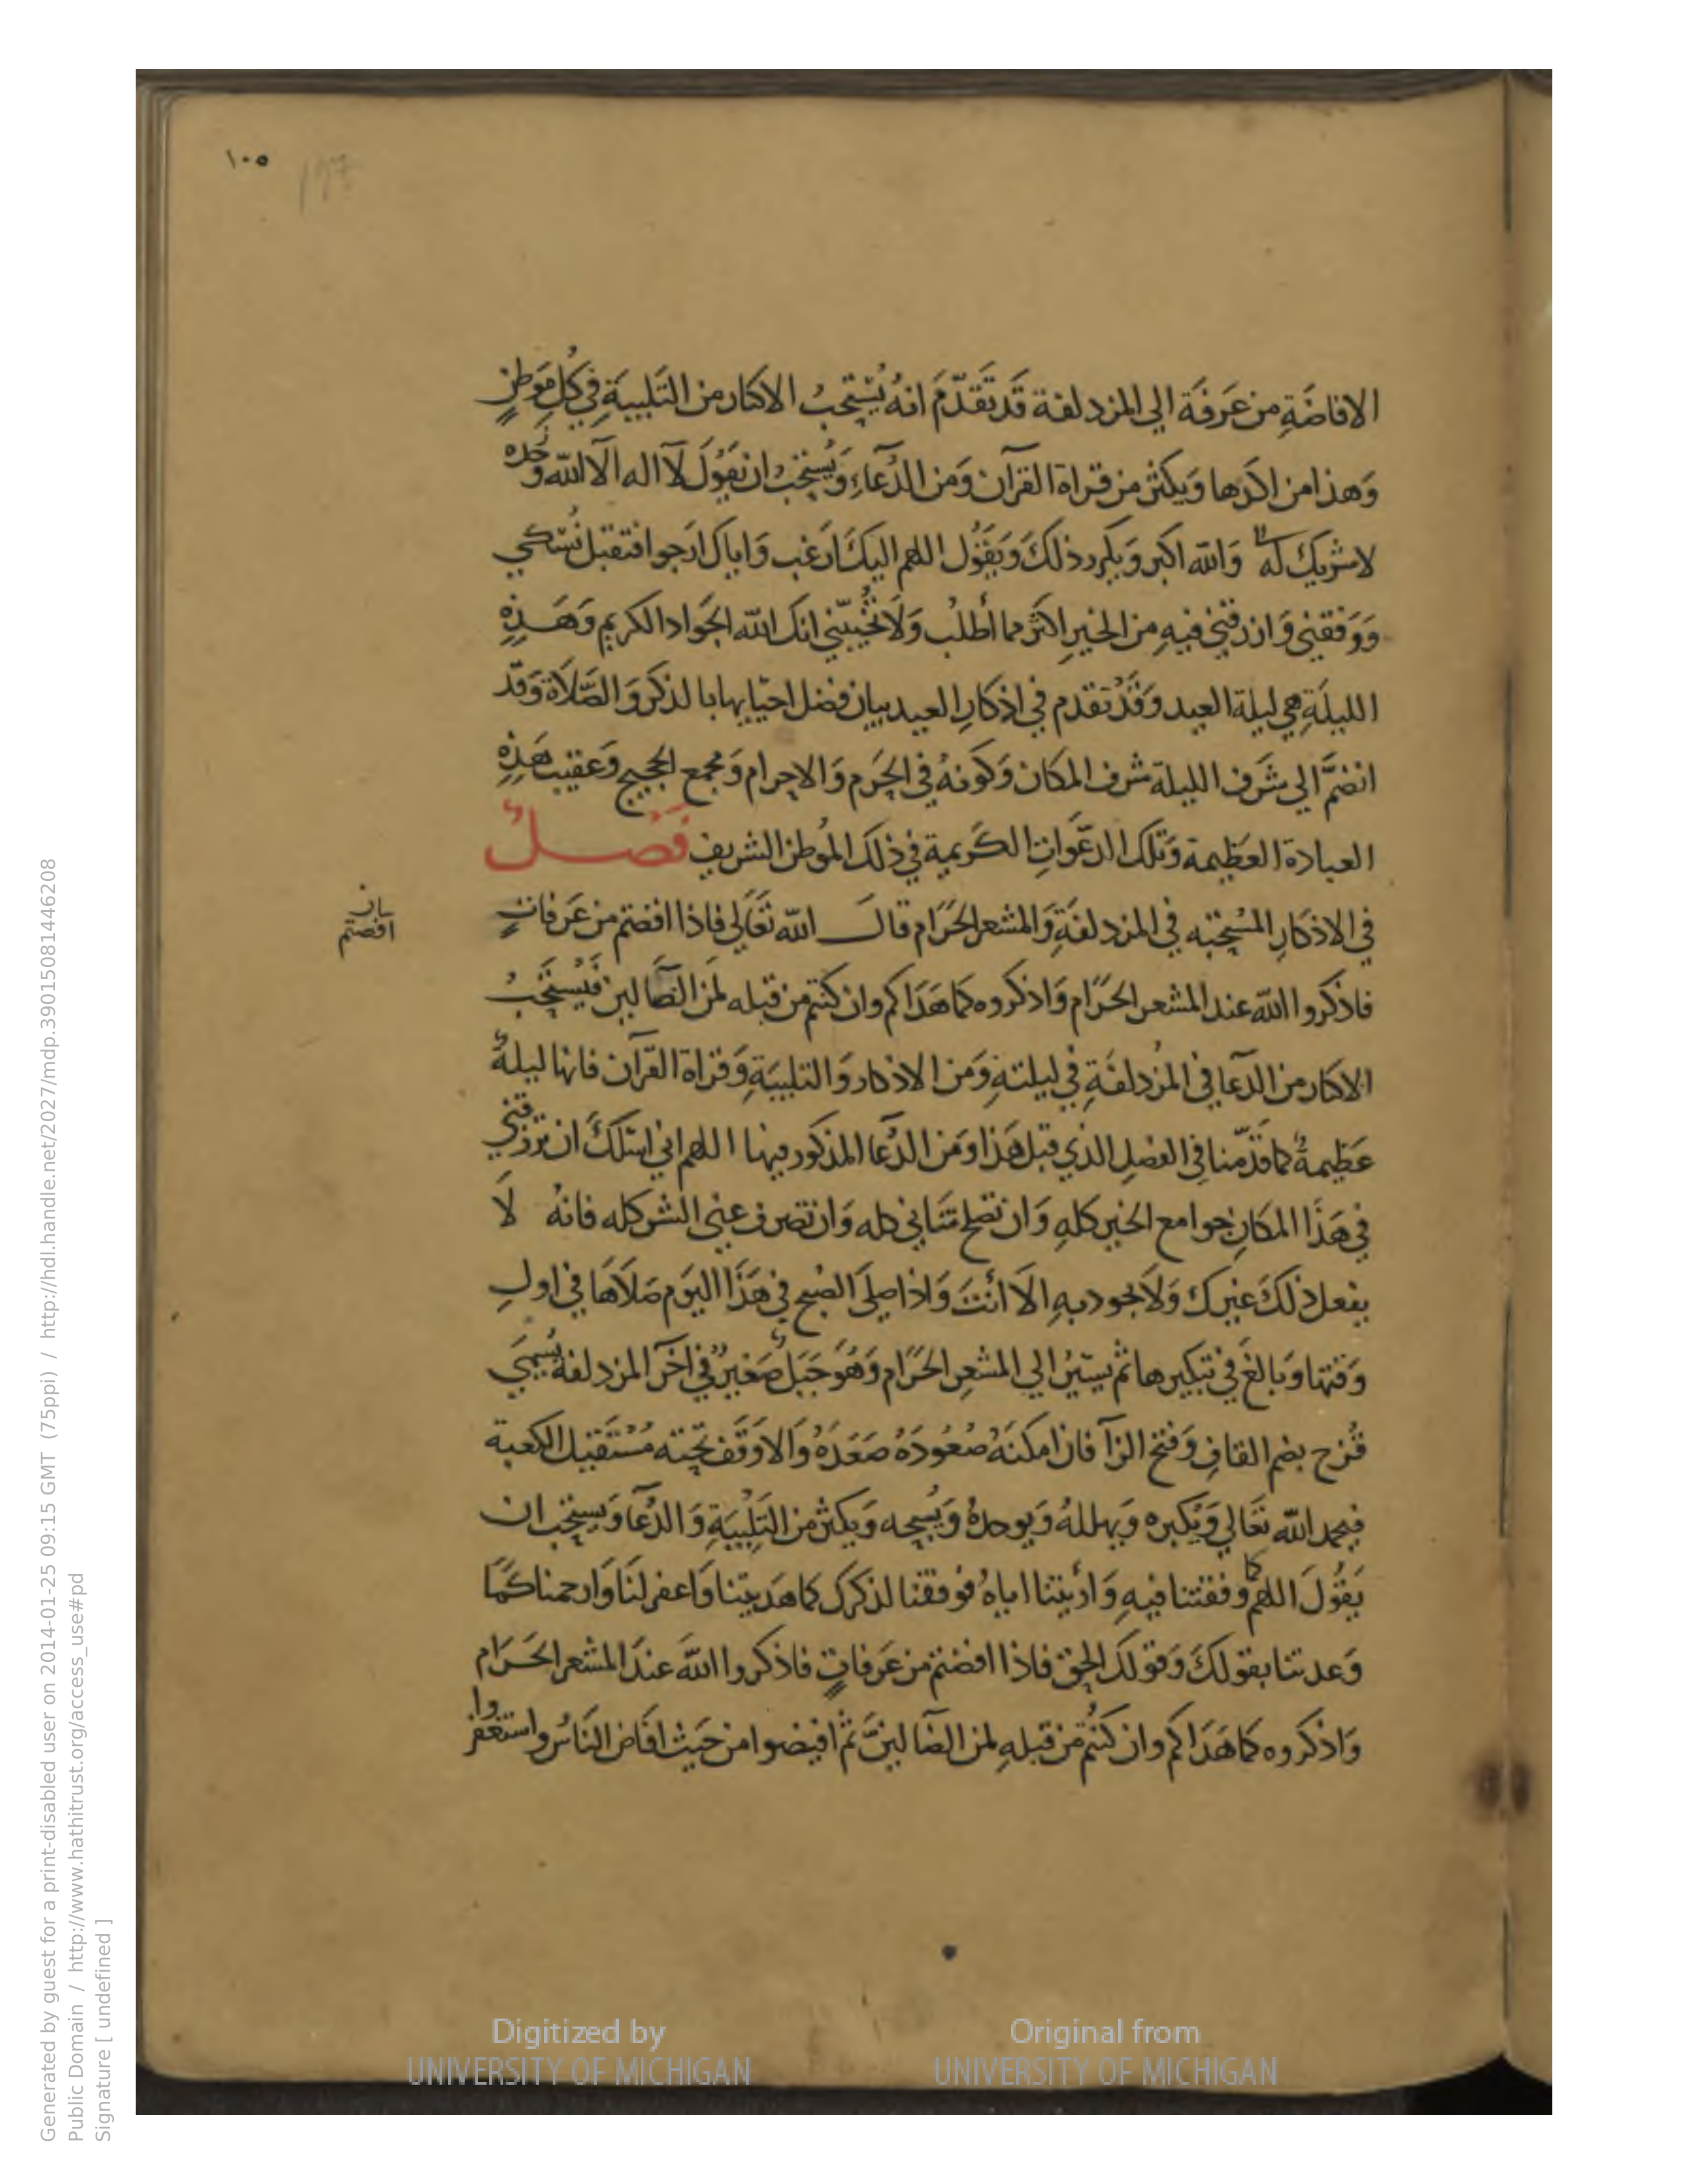 ١٠٥
الافاضَةِ من عَرفَة الي المزدلفة قَد تَقَدّمَ انهُ يُسْتحَبُ الاكثار من التَلبيَةِ في كُلِ مَوَطنٍ
وَهذا من اكَدِها وَيكثر من قراة القرآن وَمن الدُعآءِ وَيُستحَبُ ان يقَوُلَ لآ اله الآ الله وَحْدهُ
لا شريكَ لَهُ وَالله اكبر وَيكررذلكَ وَيَقَوُل اللهم اليكَ ارَغب وَاياك ارَجوا فتقبل نُسُكي
وَوَفقني وَارزقني فيهِ من الخيرِ اكثَر مما أطلبُ وَلاَ تُخيّبني انك الله الجَواد الكريم وَهَذِهِ
الليلَةِ هي ليلة العيد وَقَدْ تقدم في اذكَارِ العيد بيان فضل احيَايها بالذكر وَالصَّلاَة وَقَد
انضمَّ الي شَرَف الليلة شرف المكان وَكَونهُ في الحَرم وَالاحرام وَمجمع الحجيج وَعقيب هَذِهِ
العبادة العَظيمة وَتلك الدعَواتِ الكَريمة في ذلكَ الموُطن الشريفِ فَصْلٌ
في الاذكارِ المسُتحبّه في المزدلفَةِ وَالمشعر الحَرَام قالَ الله تعَالي فاذا افضتم من عَرفاتٍ
بيان
افضتم
فاذكروا الله عند المشعر الحَرَام وَاذكروه كما هَدَاكم وان كنتم من قبله لمَن الضَّالين فَيُستحَبُ
الاكثار من الدعَا في المُزدلفَةِ في ليلتهِ وَمن الاذكار وَالتلبيَةِ وَقراة القرآن فانها ليلةٌ
عَظيمةٌ كما قَدّمنا في الفصلِ الذي قبل هَذا وَمن الدُعَآ المذكور فيها اللهم اني اسئلكَ ان ترزقني
في هَذَا المكَانِ جوامع الخير كلهِ وَان تصلح شَاني كله وَان تصرف عني الشر كله فانهُ لاَ
يفعل ذلكَ غيرك وَلاَ يجود بهِ الاَ انتَ وَاذا صلىَ الصُبح في هَذَا اليَوم صَلاَهَا في اولِ
وَقتها وَبالغَ في تبكيرها ثم يسَيرُ الي المشعرِ الحَرَام وَهُوَ جَبَلٌ صَغيرٌ في اخَر المزدلفة يُسَمي
قُزح بضم القافِ وَفتح الزآ فان امكنَهُ صُعُودَهُ صَعَدَهُ وَالا وَقفَ تحتهُ مُسْتَقبِل الكعبة
فيحمد الله تعَالي وَيُكبره وَيهللهُ وَيوحدهُ وَيُسبحه وَيكثر من التَلبيَةِ وَالدُعَآ وَيستحَب ان
يَقوُلَ اللهم كما وفقتنا فيهِ وَارَيتنا اياهُ فوفقنا لذكرك كما هَديتنا وَاغفر لنَا وَارحمنا كَمَا
وَعدتنا بقولكَ وَقولكَ الحق فاذا افضتم من عَرفاتٍ فاذكروا اللهَ عندَ المشعر الحَرَام
وَاذكروه كما هَدَاكم وان كنتُم من قبلهِ لمن الضآلينَ ثم افيضوا من حَيث افَاض النَاسُ واستغفروا
Digitized by
UNIVERSITY OF MICHIGAN
Original from
UNIVERSITY OF MICHIGAN
Generated by guest for a print-disabled user on 2014-01-25 09:15 GMT (75ppi) / http://hdl.handle.net/2027/mdp.39015081446208
Public Domain / http://www.hathitrust.org/access_use#pd
Signature [ undefined ]